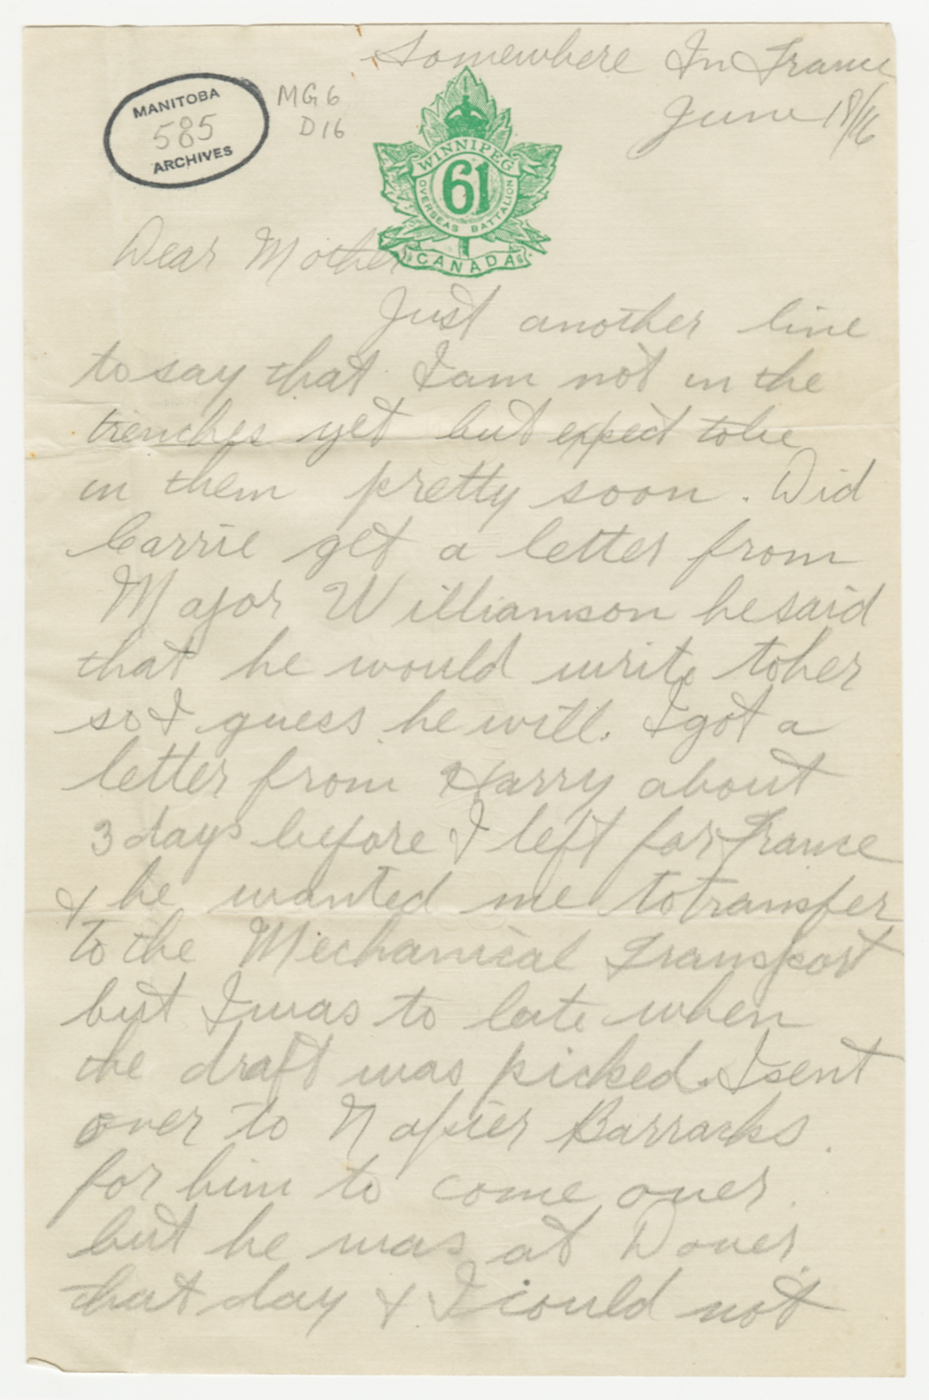 Somewhere In France
June 18/16
MANITOBA
585
ARCHIVES
MG6
D16
WINNIPEG
61
OVERSEAS BATTALION
CANADA
Dear Mother
Just another line
to say that I am not in the
trenches yet but expect to be
in them pretty soon. Did
Carrie get a letter from
Major Williamson he said
that he would write to her
so I guess he will. I got a
letter from Harry about
3 days before I left for France
& he wanted me to transfer
to the Mechanical Transport
but I was to late when
the draft was picked. I sent
over to Napier Barracks.
for him to come over.
but he was at Dover.
that day & I could not